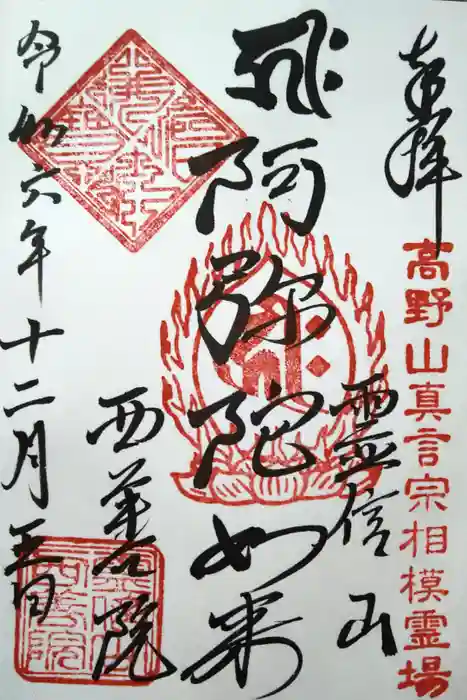 奉拝
高野山真言宗相模霊場
霊信山
飛阿弥陀如来
西善院
令和六年十二月五日